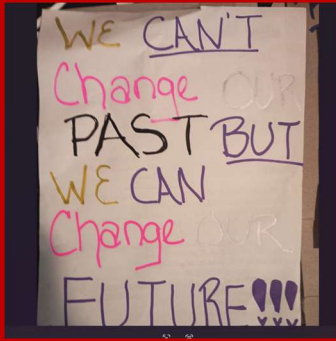 WE CAN'T
Change OUR
PAST BUT
WE CAN
Change OUR
FUTURE!!!